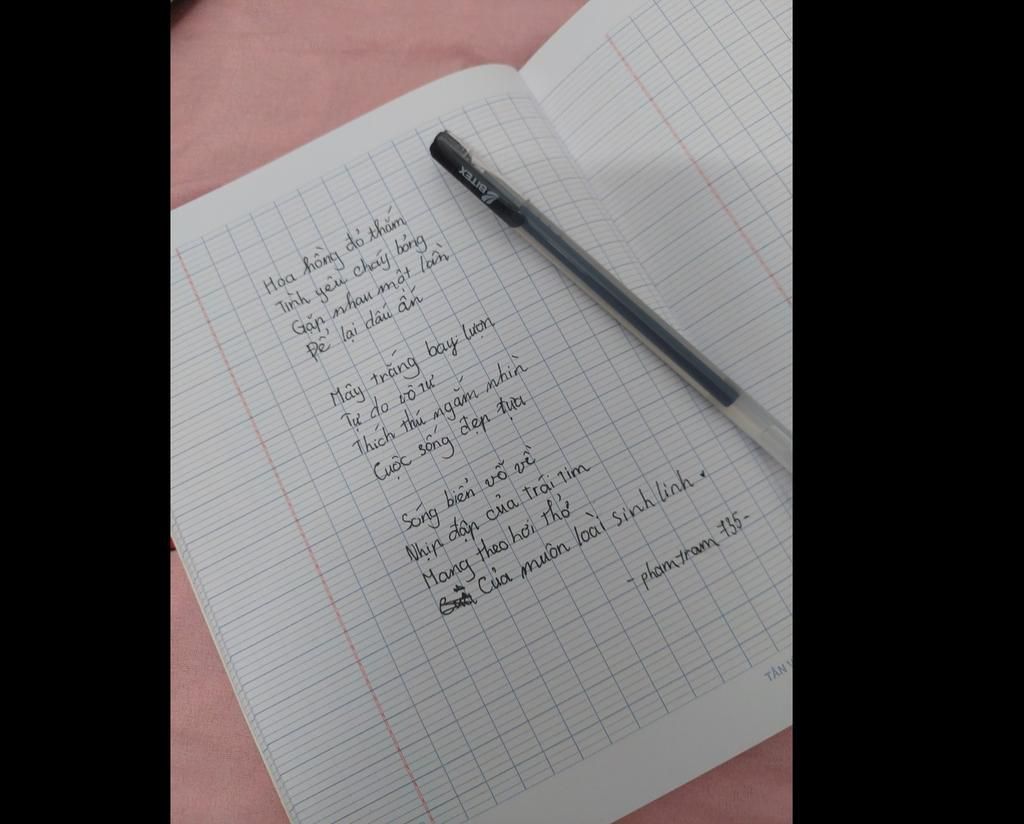 Hoa hồng đỏ thắm
Tình yêu cháy bỏng
Gặp nhau một lần
Để lại dấu ấn
Mây trắng bay lượn
Tự do vô tư
Thích thú ngắm nhìn
Cuộc sống đẹp tựa
Sóng biển vỗ về
Nhịp đập của trái tim
Mang theo hơi thở
Của muôn loài sinh linh.
-phamtram735-
BITEX
TÂN